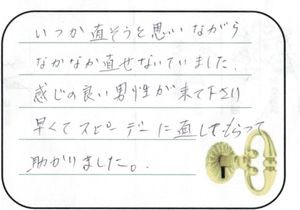 いつか直そうと思いながら
なかなか直せないでいました。
感じの良い男性が来て下さり
早くてスピーデーに直してもらって
助かりました。